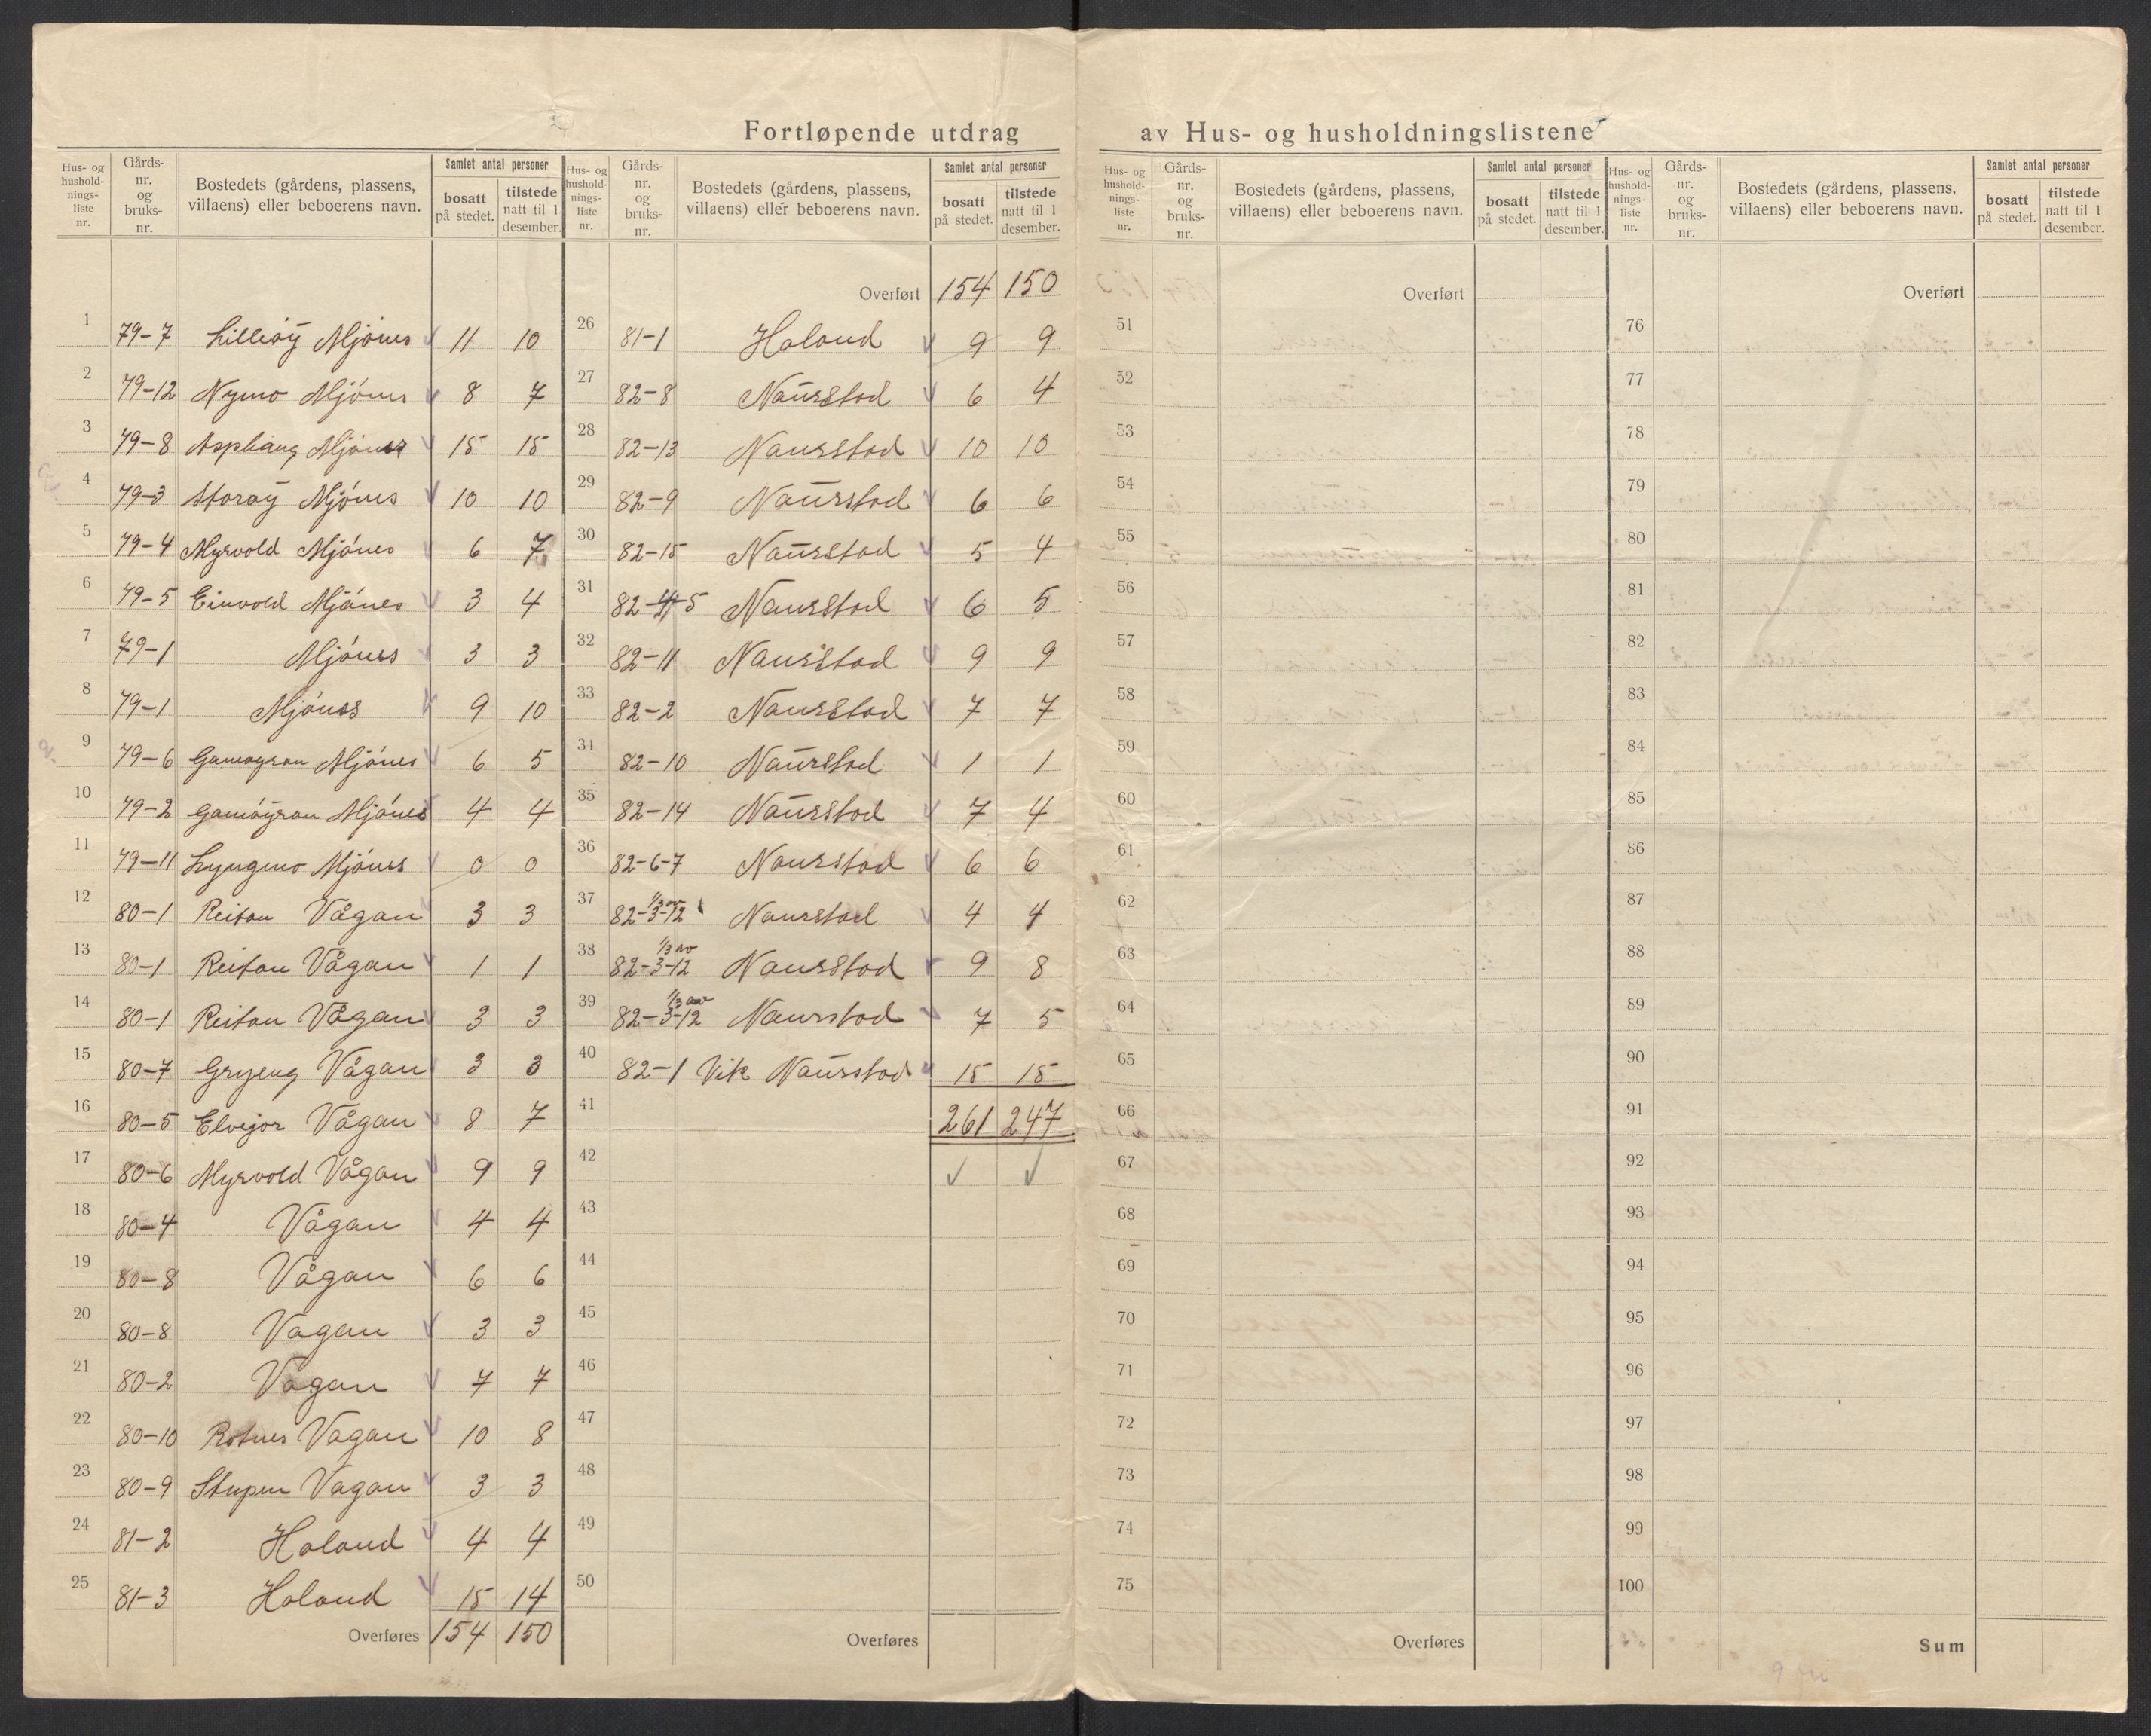 Fortløpende utdrag av Hus- og husholdningslistene
Hus- og hushold-nings-liste nr. | Gårds-nr. og bruks-nr. | Bostedets (gårdens, plassens, villaens) eller beboerens navn. | Samlet antal personer | bosatt på stedet. | tilstede natt til 1 desember.
1 79-7 Lilleøy Mjónes 11 10
2 79-12 Nymo Mjónes 8 7
3 79-8 Asphaug Mjónes 15 15
4 79-3 Storøy Mjónes 10 10
5 79-4 Myrvold Mjónes 6 7
6 79-5 Einvold Mjónes 3 4
7 79-1 Mjónes 3 3
8 79-1 Mjónes 9 10
9 79-6 Mjónes 6 5
10 79-2 Mjónes 4 4
11 79-11 Lyngmo Mjónes 0 0
12 80-1 Reitan Vågan 3 3
13 80-1 Reitan Vågan 1 1
14 80-1 Reitan Vågan 3 3
15 80-7 Gryeng Vågan 3 3
16 80-5 Elvejor Vågan 8 7
17 80-6 Myrvold Vågan 9 9
18 80-4 Vågan 4 4
19 80-8 Vågan 6 6
20 80-8 Vagan 3 3
21 80-2 Vagan 7 7
22 80-10 Rotnes Vagan 10 8
23 80-9 Stupen Vagan 3 3
24 81-2 Haland 4 4
25 81-3 Haland 15 14
Overføres 154 150
Hus- og hushold-nings-liste nr. | Gårds-nr. og bruks-nr. | Bostedets (gårdens, plassens, villaens) eller beboerens navn. | Samlet antal personer | bosatt på stedet. | tilstede natt til 1 desember.
Overført 154 150
26 81-1 Haland 9 9
27 82-8 Naurstad 6 4
28 82-13 Naurstad 10 10
29 82-9 Naurstad 6 6
30 82-15 Naurstad 5 4
31 82-5 Naurstad 6 5
32 82-11 Naurstad 9 9
33 82-2 Naurstad 7 7
34 82-10 Naurstad 1 1
35 82-14 Naurstad 7 4
36 82-6-7 Naurstad 6 6
37 82-3-12 1/3 av Naurstad 4 4
38 82-3-12 1/3 av Naurstad 9 8
39 82-3-12 1/3 av Naurstad 7 5
40 82-1 Vik Naurstad 15 15
41 261 247
42
43
44
45
46
47
48
49
50
Overføres
Hus- og hushold-nings-liste nr. | Gårds-nr. og bruks-nr. | Bostedets (gårdens, plassens, villaens) eller beboerens navn. | Samlet antal personer | bosatt på stedet. | tilstede natt til 1 desember.
Overført
51
52
53
54
55
56
57
58
59
60
61
62
63
64
65
66
67
68
69
70
71
72
73
74
75
Overføres
Hus- og hushold-nings-liste nr. | Gårds-nr. og bruks-nr. | Bostedets (gårdens, plassens, villaens) eller beboerens navn. | Samlet antal personer | bosatt på stedet. | tilstede natt til 1 desember.
Overført
76
77
78
79
80
81
82
83
84
85
86
87
88
89
90
91
92
93
94
95
96
97
98
99
100
Sum